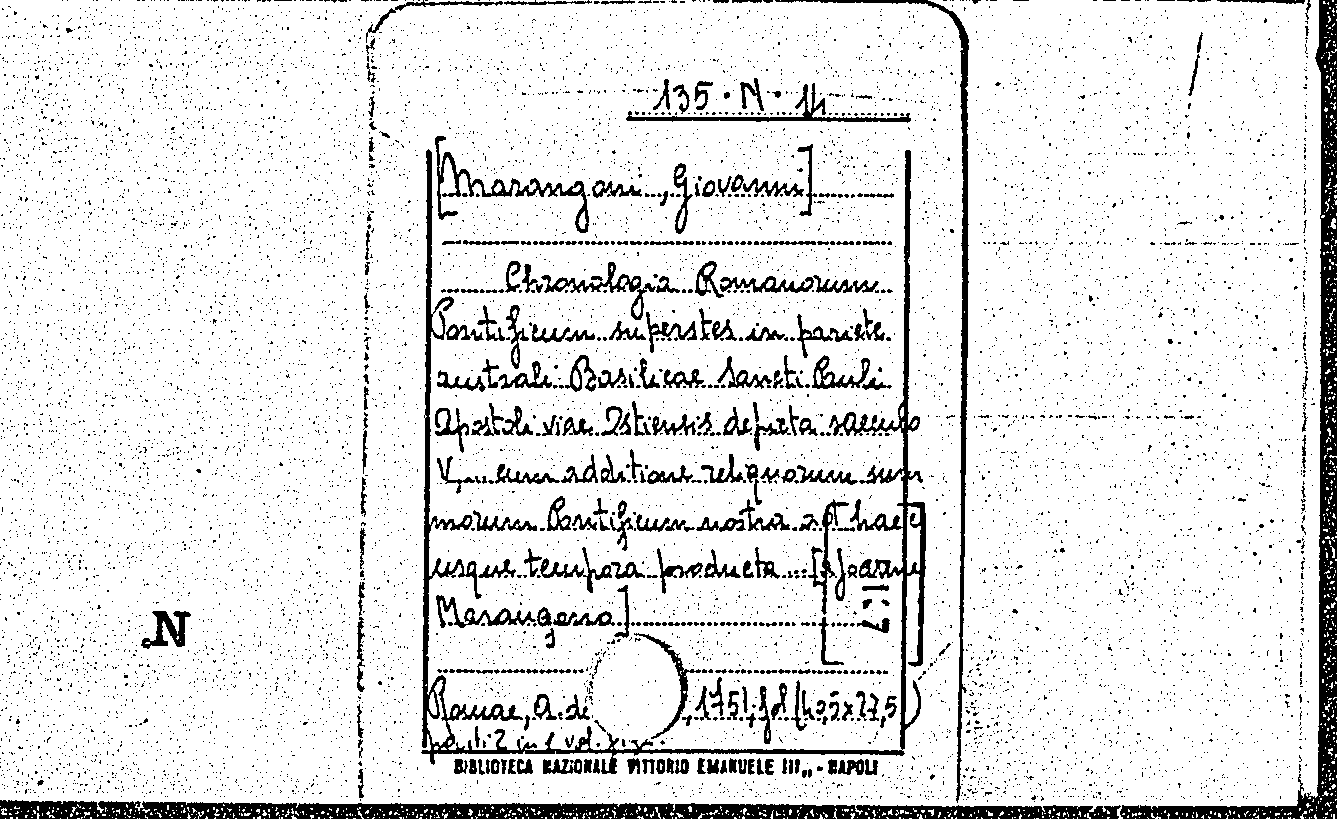 135 · N · 14
[Marangoni, Giovanni]
Chronologia Romanorum
Pontificum superstes in pariete
australi Basilicae Sancti Pauli
Apostoli viae Ostiensis depicta saeculo
V,... cum additione reliquorum sum
morum Pontificum nostra ad haec
usque tempora producta ... [a Joanne
Marangono]
Romae, A. de , 1751, fol (40,5x27,5)
.N
BIBLIOTECA NAZIONALE VITTORIO EMANUELE III,, - NAPOLI